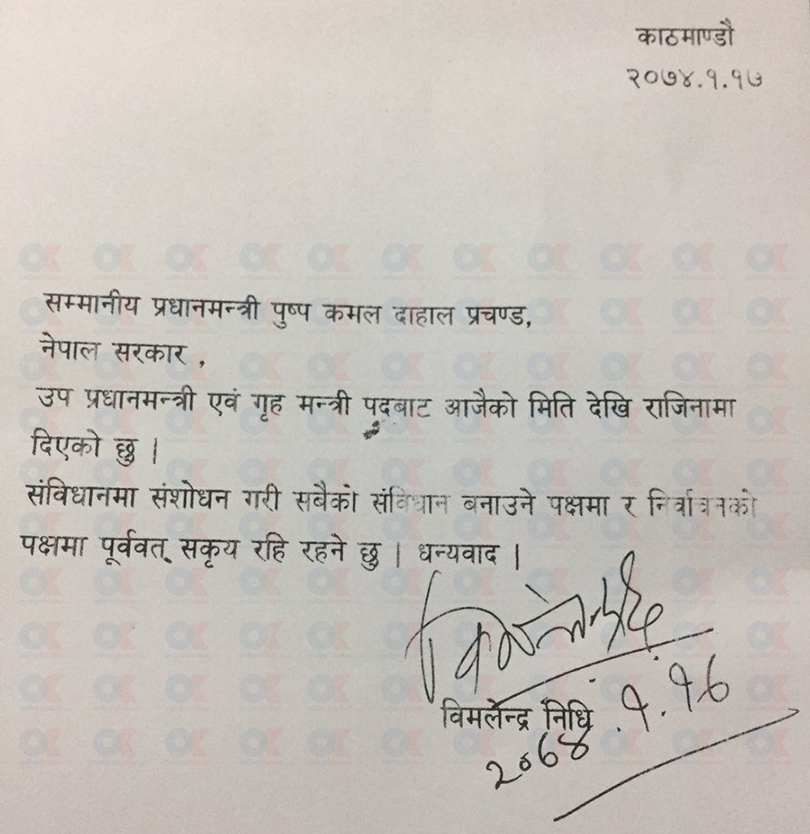 काठमाण्डौ
२०७४.१.१७
सम्मानीय प्रधानमन्त्री पुष्प कमल दाहाल प्रचण्ड,
नेपाल सरकार ,
उप प्रधानमन्त्री एवं गृह मन्त्री पदबाट आजैको मिति देखि राजिनामा
दिएको छु |
संविधानमा संशोधन गरी सबैको संविधान बनाउने पक्षमा र निर्वाचनको
पक्षमा पूर्ववत् सकृय रहि रहने छु | धन्यवाद |
विमलेन्द्र निधि
२०७४.१.१७